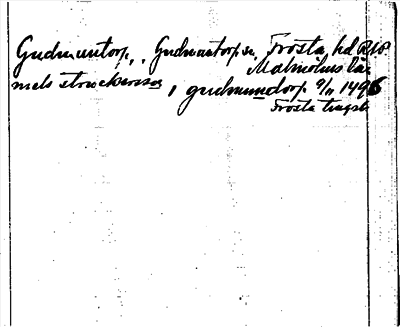 Gudmuntorp, Gudmuntorps sn, Frosta hd
Malmöhus län
mels struckersson i gudmundorp 9/11 1496
Frosta tingsb